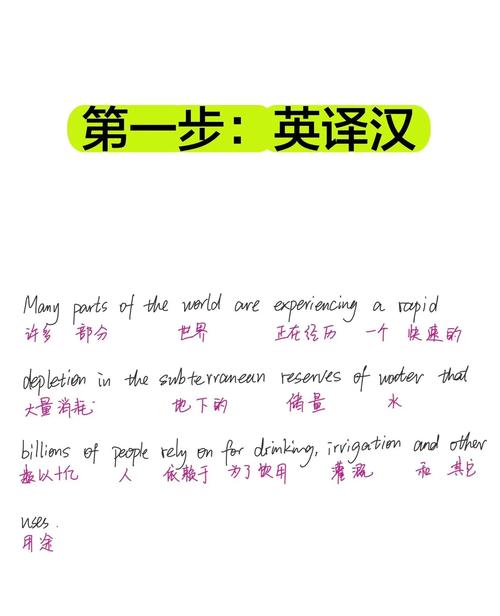 第一步：英译汉
Many parts of the world are experiencing a rapid
许多 部分 世界 正在经历 一个 快速的
depletion in the subterranean reserves of water that
大量消耗 地下的 储量 水
billions of people rely on for drinking, irrigation and other
数以十亿 人 依赖于 为了饮用 灌溉 和 其它
uses.
用途